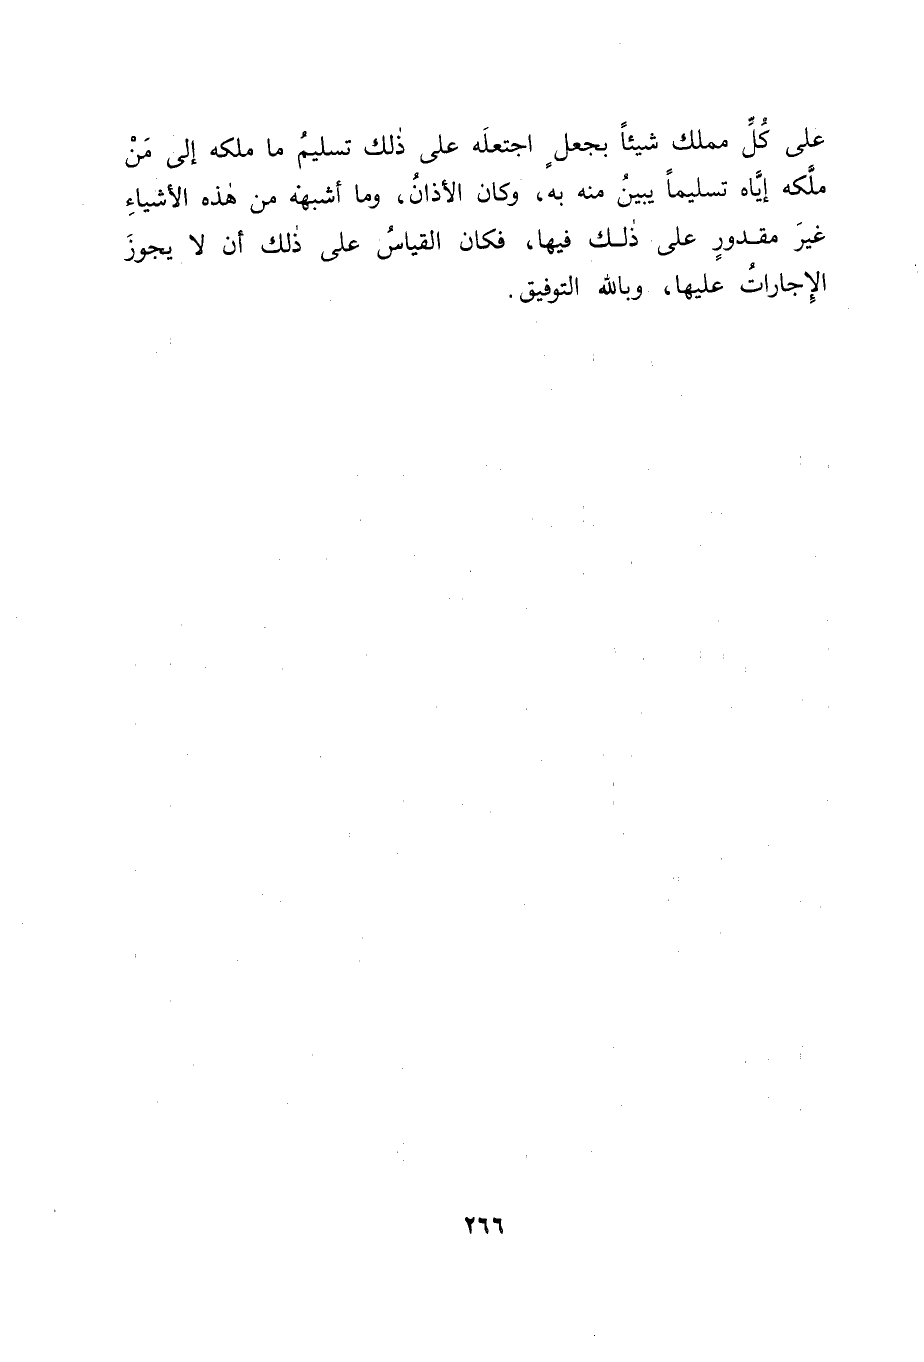 على كُلِّ مملك شيئاً بجعلٍ اجتعلَه على ذٰلك تسليمُ ما ملكه إلى مَنْ
ملَّكه إيَّاه تسليماً يبينُ منه به، وكان الأذانُ، وما أشبههُ من هٰذه الأشياءِ
غيرَ مقدورٍ على ذٰلك فيها، فكان القياسُ على ذٰلك أن لا يجوزَ
الإِجاراتُ عليها، وبالله التوفيق.
٢٦٦